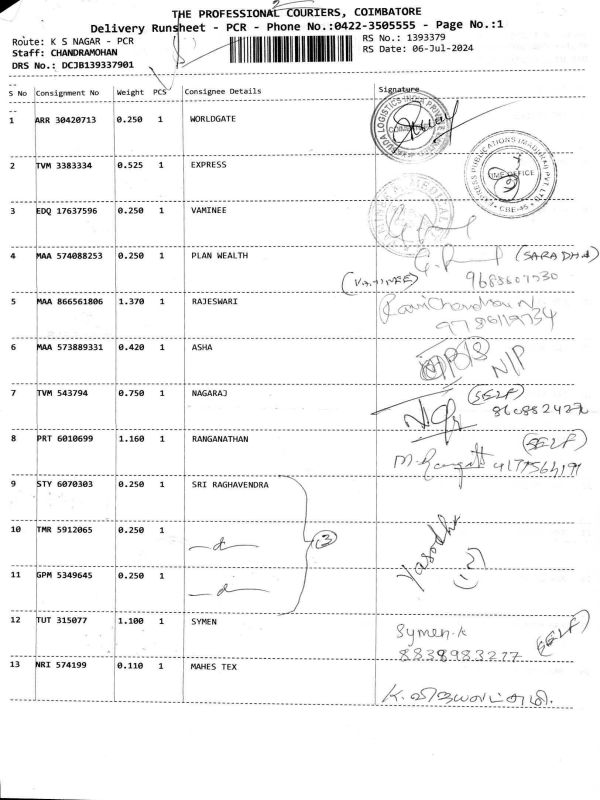 THE PROFESSIONAL COURIERS, COIMBATORE
Delivery Runsheet - PCR - Phone No.:0422-3505555 - Page No.:1
Route: K S NAGAR - PCR
RS No.: 1393379
Staff: CHANDRAMOHAN
RS Date: 06-Jul-2024
DRS No.: DCJB139337901
S No Consignment No Weight PCS Consignee Details Signature
1 ARR 30420713 0.250 1 WORLDGATE
2 TVM 3383334 0.525 1 EXPRESS
3 EDQ 17637596 0.250 1 VAMINEE
4 MAA 574088253 0.250 1 PLAN WEALTH (SARADHA)
5 MAA 866561806 1.370 1 RAJESWARI
6 MAA 573889331 0.420 1 ASHA N/P
7 TVM 543794 0.750 1 NAGARAJ (SELF)
8 PRT 6010699 1.160 1 RANGANATHAN (SELF)
9 STY 6070303 0.250 1 SRI RAGHAVENDRA
10 TMR 5912065 0.250 1 (3) Yasodha
11 GPM 5349645 0.250 1
12 TUT 315077 1.100 1 SYMEN Symen.k (SELF)
8838983277
13 NRI 574199 0.110 1 MAHES TEX